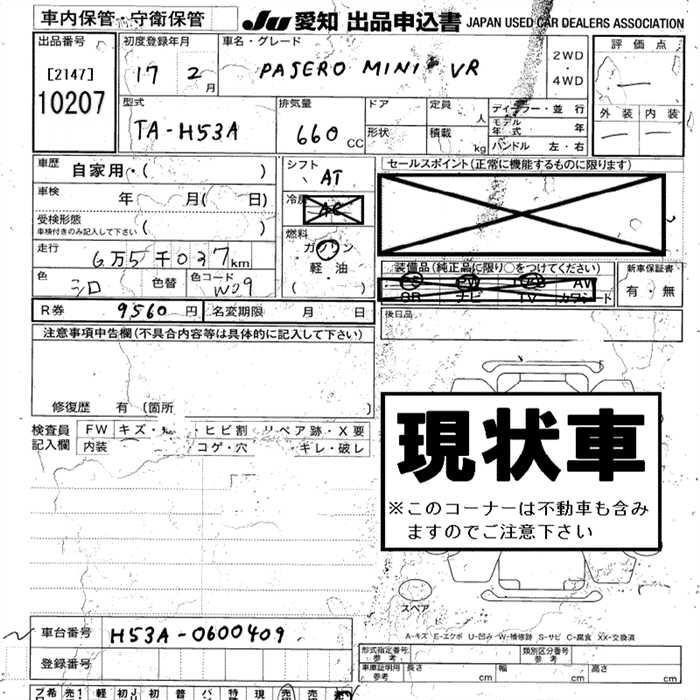 車内保管・守衛保管
JU 愛知 出品申込書 JAPAN USED CAR DEALERS ASSOCIATION
出品番号
[2147]
10207
初度登録年月
17 2月
車名・グレード
PASERO MINI VR
2WD
・
4WD
評価点
—
外装 内装
— —
型式
TA-H53A
排気量
660 CC
ドア
形状
定員 人
積載 kg
ディーラー・並行
モデル年式 年
ハンドル 左・右
車歴 自家用・( )
車検 年 月( 日)
受検形態
車検付きのみ記入して下さい ( )
走行 6万5千037km
色 シロ 色替 色コード W09
シフト AT
冷房 AC
燃料
ガソリン
軽・油
( )
セールスポイント(正常に機能するものに限ります)
装備品(純正品に限り○をつけてください)
PS PW AV
SR ナビ TV カワシート
新車保証書
有・無
後日品
R券 9560円 名変期限 月 日
注意事項申告欄(不具合内容等は具体的に記入して下さい)
修復歴 有 〔箇所 〕
検査員記入欄 FW キズ・ ヒビ割 リペア跡・X要
内装 コゲ・穴 ギレ・破レ
現状車
※このコーナーは不動車も含み
ますのでご注意下さい
スペア
A-キズ E-エクボ U-凹み W-補修跡 S-サビ C-腐食 XX-交換済
車台番号 H53A-0600409
登録番号
形式指定番号 参考 類別区分番号 参考
車庫証明用 参考 長さ cm 幅 cm 高さ cm